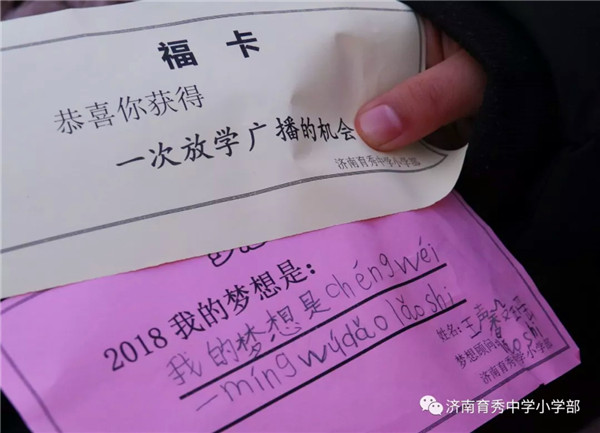 福 卡
恭喜你获得
一次放学广播的机会
济南育秀中学小学部
2018 我的梦想是:
我的梦想是chéngwéi
一míngwúdǎolǎoshī
姓名:王
梦想顾问
济南育秀中学小学部
济南育秀中学小学部